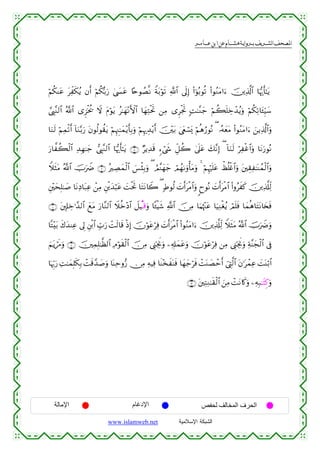 المصحف الشريف برواية هشام عن ابن عامر
يَٰٓأَيُّهَا ٱلَّذِينَ ءَامَنُوا۟ تُوبُوٓا۟ إِلَى ٱللَّهِ تَوْبَةً نَّصُوحًا عَسَىٰ رَبُّكُمْ أَن يُكَفِّرَ عَنكُمْ
سَيِّـَٔاتِكُمْ وَيُدْخِلَكُمْ جَنَّٰتٍ تَجْرِى مِن تَحْتِهَا ٱلْأَنْهَٰرُ يَوْمَ لَا يُخْزِى ٱللَّهُ ٱلنَّبِىَّ
وَٱلَّذِينَ ءَامَنُوا۟ مَعَهُۥ نُورُهُمْ يَسْعَىٰ بَيْنَ أَيْدِيهِمْ وَبِأَيْمَٰنِهِمْ يَقُولُونَ رَبَّنَآ أَتْمِمْ لَنَا
نُورَنَا وَٱغْفِرْ لَنَآ إِنَّكَ عَلَىٰ كُلِّ شَىْءٍ قَدِيرٌ يَٰٓأَيُّهَا ٱلنَّبِىُّ جَٰهِدِ ٱلْكُفَّارَ
وَٱلْمُنَٰفِقِينَ وَٱغْلُظْ عَلَيْهِمْ وَمَأْوَىٰهُمْ جَهَنَّمُ وَبِئْسَ ٱلْمَصِيرُ ضَرَبَ ٱللَّهُ مَثَلًا
لِّلَّذِينَ كَفَرُوا۟ ٱمْرَأَتَ نُوحٍ وَٱمْرَأَتَ لُوطٍ كَانَتَا تَحْتَ عَبْدَيْنِ مِنْ عِبَادِنَا صَٰلِحَيْنِ
فَخَانَتَاهُمَا فَلَمْ يُغْنِيَا عَنْهُمَا مِنَ ٱللَّهِ شَيْـًٔا وَقِيلَ ٱدْخُلَا ٱلنَّارَ مَعَ ٱلدَّٰخِلِينَ
وَضَرَبَ ٱللَّهُ مَثَلًا لِّلَّذِينَ ءَامَنُوا۟ ٱمْرَأَتَ فِرْعَوْنَ إِذْ قَالَتْ رَبِّ ٱبْنِ لِى عِندَكَ بَيْتًا
فِى ٱلْجَنَّةِ وَنَجِّنِى مِن فِرْعَوْنَ وَعَمَلِهِۦ وَنَجِّنِى مِنَ ٱلْقَوْمِ ٱلظَّٰلِمِينَ وَمَرْيَمَ
ٱبْنَتَ عِمْرَٰنَ ٱلَّتِىٓ أَحْصَنَتْ فَرْجَهَا فَنَفَخْنَا فِيهِ مِن رُّوحِنَا وَصَدَّقَتْ بِكَلِمَٰتِ رَبِّهَا
وَكِتَٰبِهِۦ وَكَانَتْ مِنَ ٱلْقَٰنِتِينَ
الحرف المخالف لحفص الإدغام الإمالة
الشبكة الإسلامية www.islamweb.net